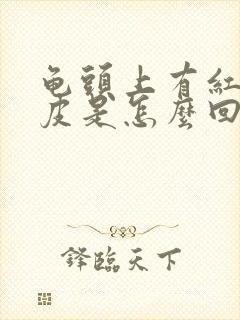 龟頭上有紅
皮是怎麼回
鋒臨天下